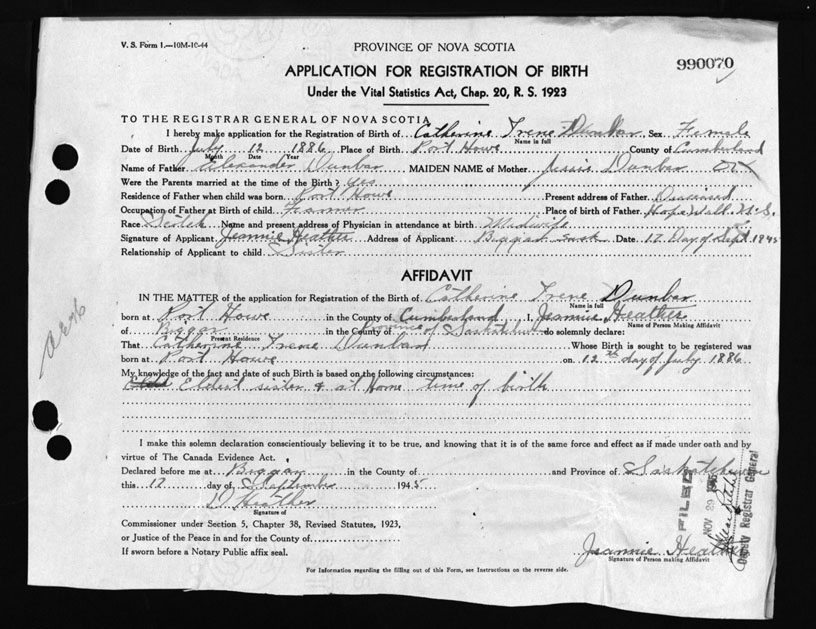 V. S. Form 1.—10M-10-44
PROVINCE OF NOVA SCOTIA
990070
APPLICATION FOR REGISTRATION OF BIRTH
Under the Vital Statistics Act, Chap. 20, R. S. 1923
TO THE REGISTRAR GENERAL OF NOVA SCOTIA
I hereby make application for the Registration of Birth of Catherine Irene Dunbar Sex Female
Name in full
Date of Birth July 12 1886 Place of Birth Port Howe County of Cumberland
Month Date Year
Name of Father Alexander Dunbar MAIDEN NAME of Mother Jessie Dunbar
Were the Parents married at the time of the Birth? Yes
Residence of Father when child was born Port Howe Present address of Father Deceased
Occupation of Father at Birth of child Farmer Place of birth of Father Hopewell N.S.
Race Scotch Name and present address of Physician in attendance at birth Midwife
Signature of Applicant Jeannie Heather Address of Applicant Biggar Sask Date 12 Day of Sept 1945
Relationship of Applicant to child Sister
AFFIDAVIT
IN THE MATTER of the application for Registration of the Birth of Catherine Irene Dunbar
Name in full
born at Port Howe in the County of Cumberland I, Jeannie Heather
Name of Person Making Affidavit
of Biggar in the County of Province of Saskatchewan do solemnly declare:
Present Residence
That Catherine Irene Dunbar Whose Birth is sought to be registered was
born at Port Howe on 12th day of July 1886
My knowledge of the fact and date of such Birth is based on the following circumstances:
Eldest sister & at Home time of birth
I make this solemn declaration conscientiously believing it to be true, and knowing that it is of the same force and effect as if made under oath and by
virtue of The Canada Evidence Act.
Declared before me at Biggar in the County of and Province of Saskatchewan
this 12 day of September 1945
D Heather
Signature of
Commissioner under Section 5, Chapter 38, Revised Statutes, 1923,
or Justice of the Peace in and for the County of
If sworn before a Notary Public affix seal.
Jeannie Heather
Signature of Person making Affidavit
For Information regarding the filling out of this Form, see Instructions on the reverse side.
FILED
NOV 29 1945
Deputy Registrar General